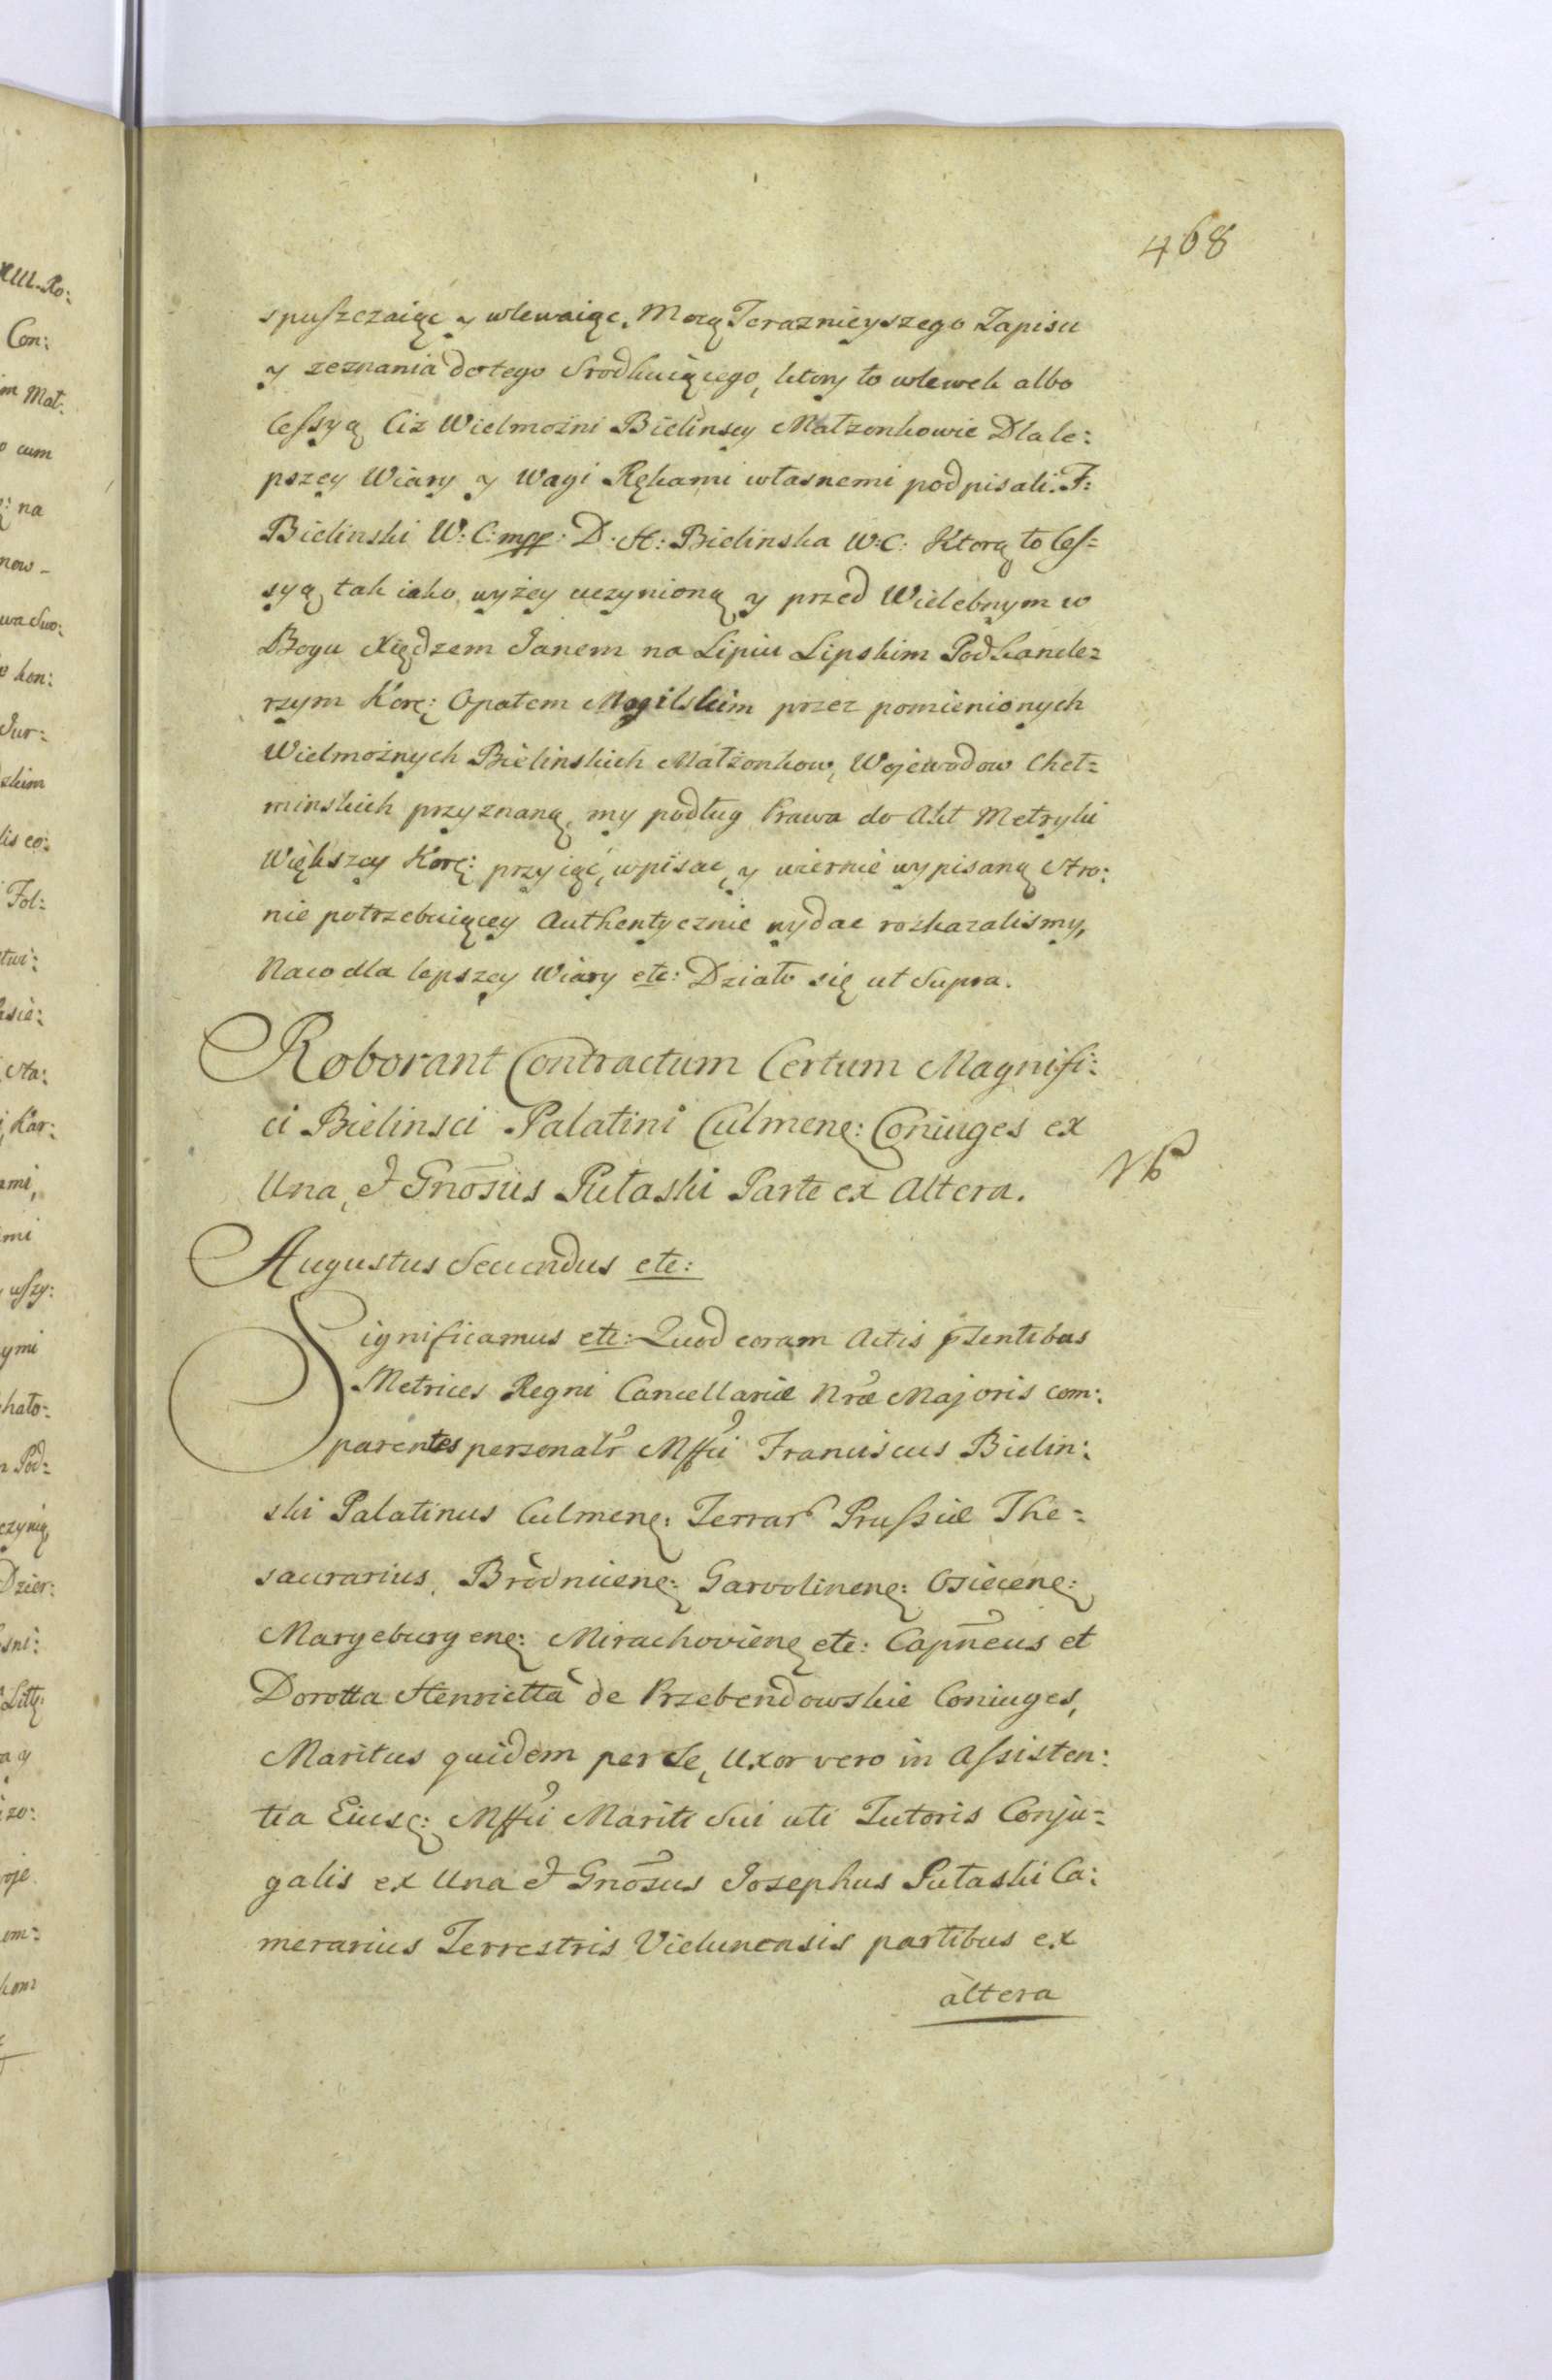 468
spuſzczaiąc y wlewaiąc, Mocą Teraznieyszego Zapisu
y zeznania do tego Srodkuiącego, ktory to wlewek albo
Ceſsyą Ciz Wielmożni Bielinscy Małzonkowie Dla le:
pszey Wiary y Wagi Rękami własnemi podpisali. F:
Bielinski W: C: mpp: D: H: Bielinska W: C: Ktorą to Ceſ=
syą tak iako wyżey uczynioną y przed Wielebnym w
Bogu Xiędzem Janem na Lipiu Lipskim Podkancle=
rzym Korę: Opatem Mogilskim przez pomienionych
Wielmożnych Bielinskich Małżonkow, Wojewodow Cheł=
minskich przyznaną, my podług Prawa do Akt Metryki
Większey Korę: przyiąć, wpisac, y wiernie wypisaną Stro:
nie potrzebuiącey Authentycznie wydac rozkazalismy,
Naco dla lepszey Wiary etc: Działo się ut Supra.
Roborant Contractum Certum Magnifi:
ci Bielinsci Palatini Culmenę: Coniuges ex
Una, et Gnosus Pułaski Parte ex Altera.
Augustus Secundus etc:
Significamus etc: Quod coram Actis pſentibus
Metrices Regni Cancellariæ Nræ Majoris com:
parentes personalr Mffci Franciscus Bielin:
ski Palatinus Culmenę: Terrar Pruſsiæ The=
saurarius, Brodnicenę: Garvolinenę: Osiecenę:
Margeburgenę: Mirachovienę etc: Capneus et
Dorotta Henrietta de Przebendowskie Coniuges,
Maritus quidem per Se, Uxor vero in Aſsisten:
tia Eiusę: Mffci Mariti Sui uti Tutoris Conju=
galis ex Una et Gnosus Josephus Pułaski Ca:
merarius Terrestris Vielunensis partibus ex
altera